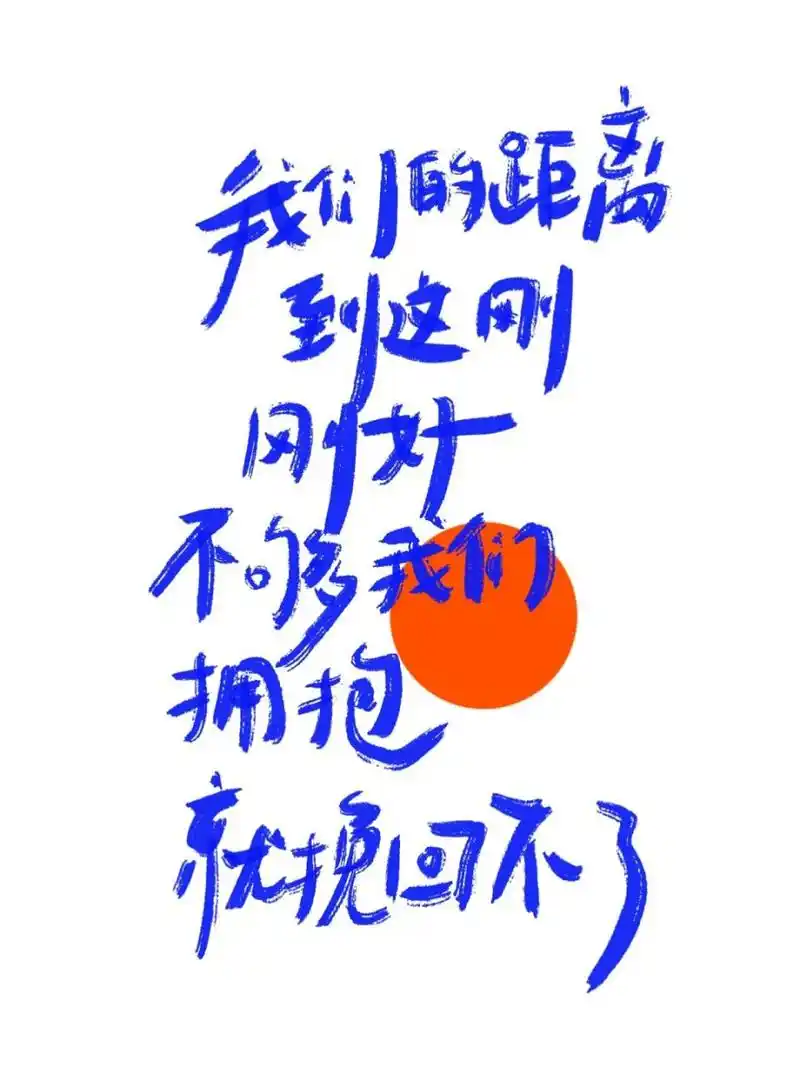 我们的距离
到这刚
刚好
不够我们
拥抱
就挽回不了